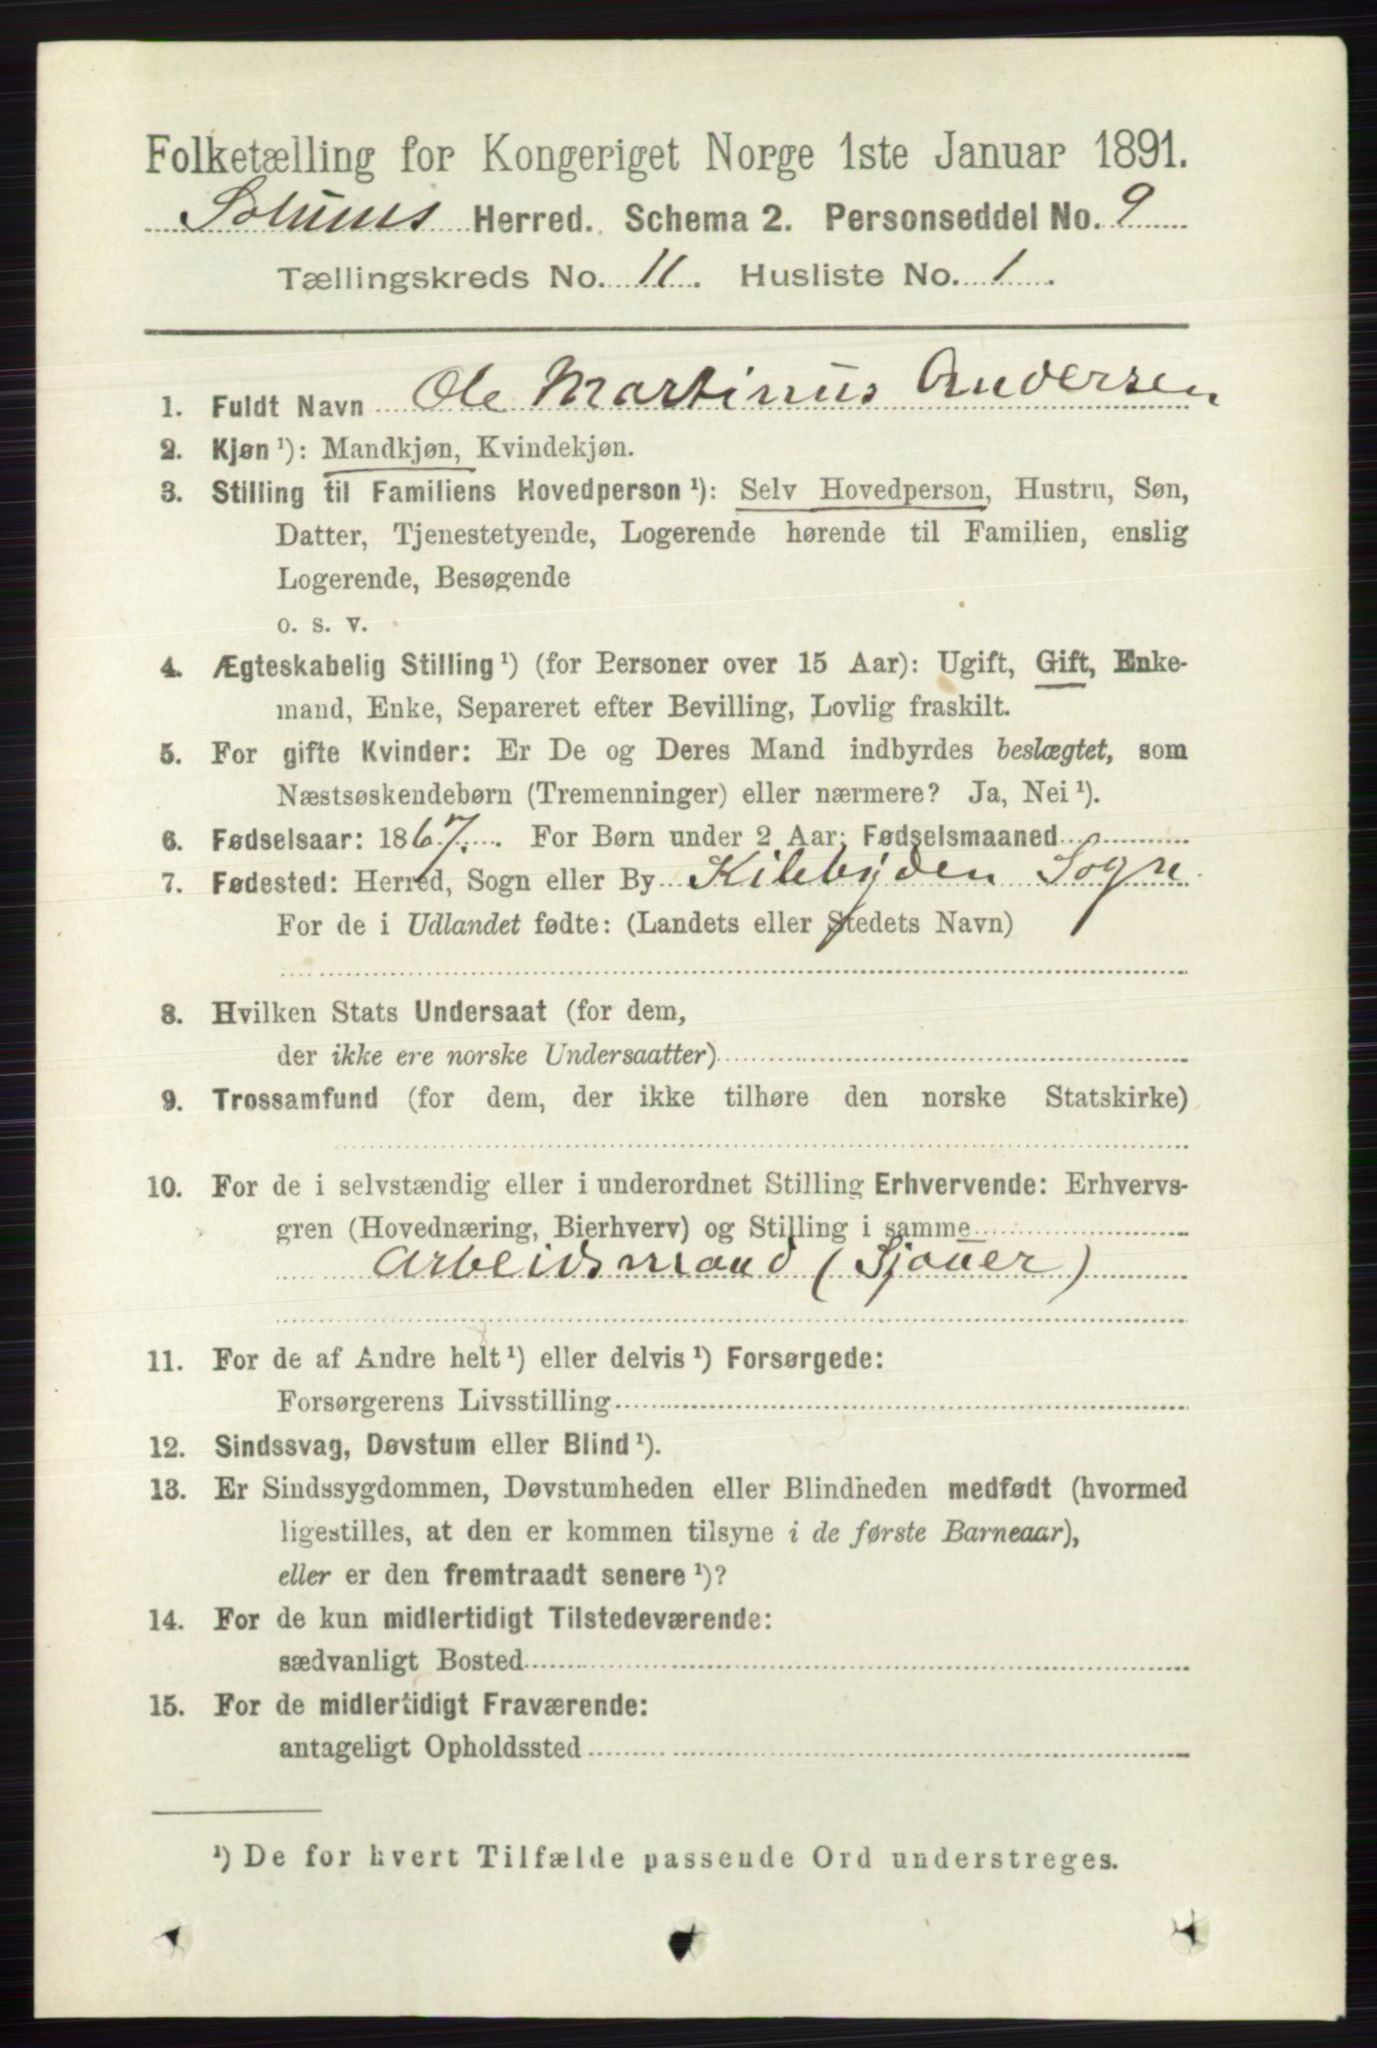 Folketælling for Kongeriget Norge 1ste Januar 1891.
Solums Herred. Schema 2. Personseddel No. 9
Tællingskreds No. 11. Husliste No. 1.
1. Fuldt Navn Ole Martinus Andersen
2. Kjøn ¹): Mandkjøn, Kvindekjøn.
3. Stilling til Familiens Hovedperson ¹): Selv Hovedperson, Hustru, Søn,
Datter, Tjenestetyende, Logerende hørende til Familien, enslig
Logerende, Besøgende
o. s. v.
4. Ægteskabelig Stilling ¹) (for Personer over 15 Aar): Ugift, Gift, Enke-
mand, Enke, Separeret efter Bevilling, Lovlig fraskilt.
5. For gifte Kvinder: Er De og Deres Mand indbyrdes beslægtet, som
Næstsøskendebørn (Tremenninger) eller nærmere? Ja, Nei ¹).
6. Fødselsaar: 1867. For Børn under 2 Aar: Fødselsmaaned
7. Fødested: Herred, Sogn eller By Kilebygden Sogn
For de i Udlandet fødte: (Landets eller Stedets Navn)
8. Hvilken Stats Undersaat (for dem,
der ikke ere norske Undersaatter)
9. Trossamfund (for dem, der ikke tilhøre den norske Statskirke)
10. For de i selvstændig eller i underordnet Stilling Erhvervende: Erhvervs-
gren (Hovednæring, Bierhverv) og Stilling i samme
Arbeidsmand (Sjouer)
11. For de af Andre helt ¹) eller delvis ¹) Forsørgede:
Forsørgerens Livsstilling
12. Sindssvag, Døvstum eller Blind ¹).
13. Er Sindssygdommen, Døvstumheden eller Blindheden medfødt (hvormed
ligestilles, at den er kommen tilsyne i de første Barneaar),
eller er den fremtraadt senere ¹)?
14. For de kun midlertidigt Tilstedeværende:
sædvanligt Bosted
15. For de midlertidigt Fraværende:
antageligt Opholdssted
¹) De for hvert Tilfælde passende Ord understreges.